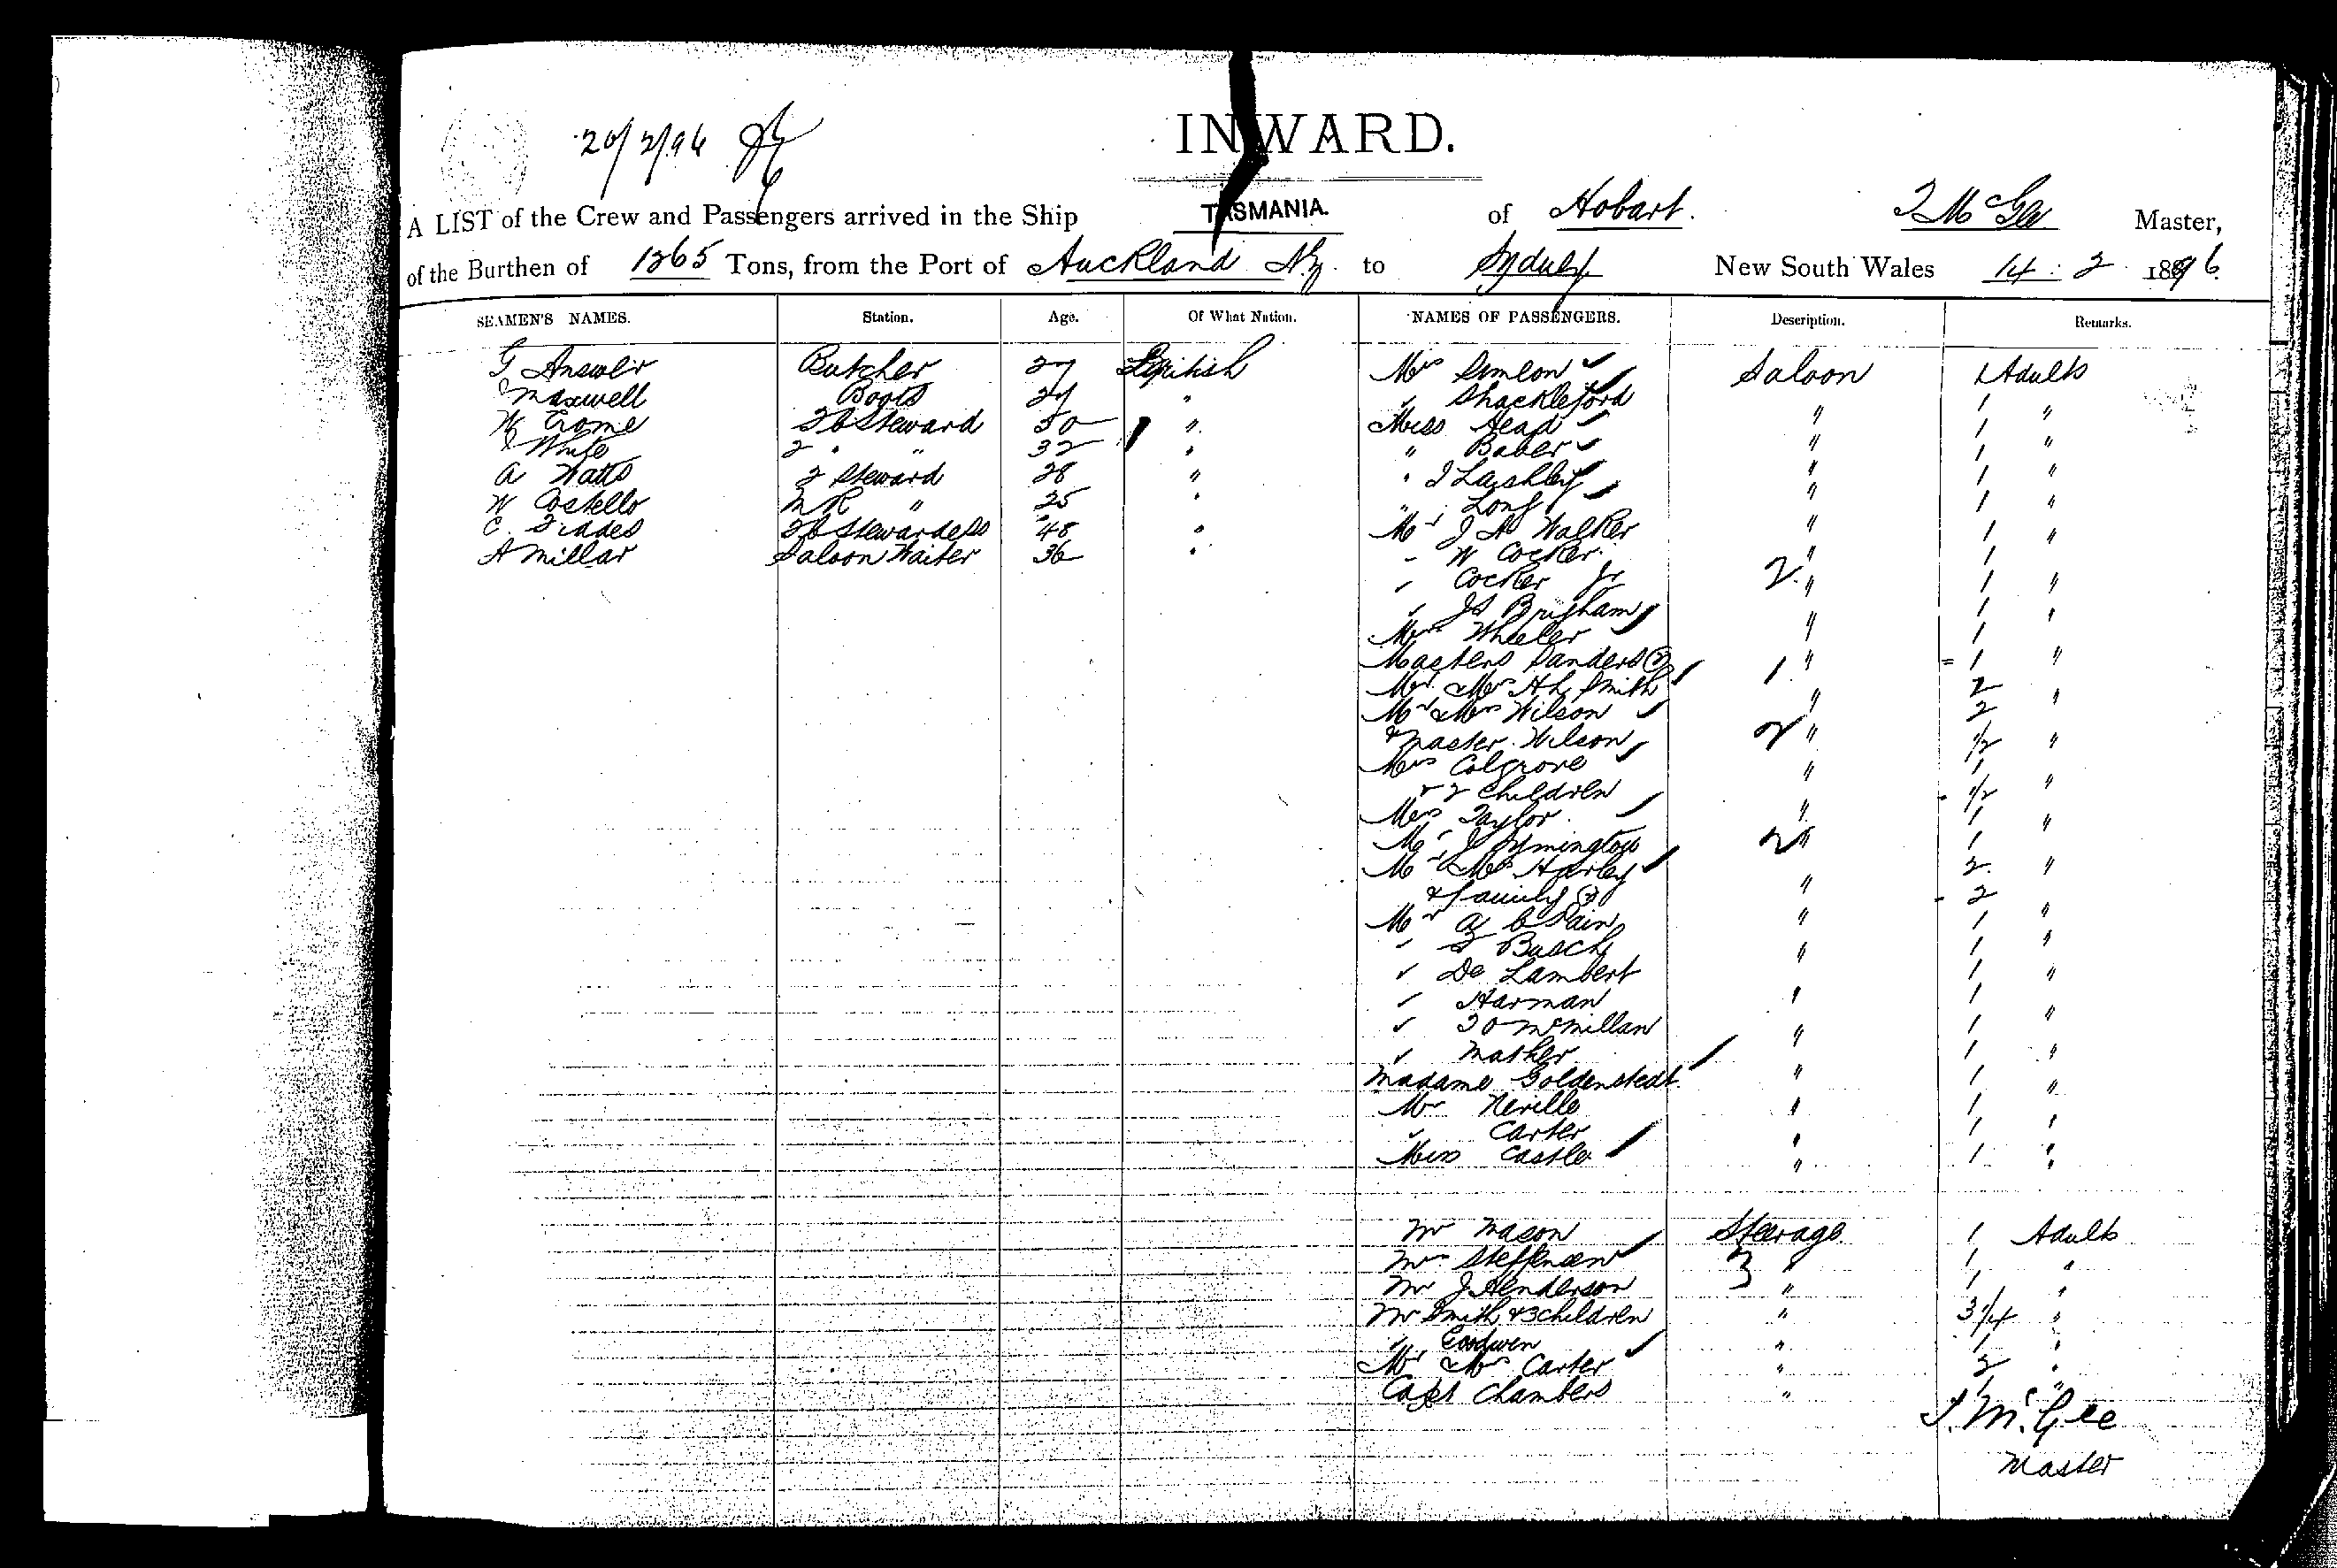 20/2/96
INWARD.
A LIST of the Crew and Passengers arrived in the Ship TASMANIA. of Hobart. T McGee Master,
of the Burthen of 1265 Tons, from the Port of Auckland N.Z. to Sydney New South Wales 14 : 2 1896.
SEAMEN'S NAMES. Station. Age. Of What Nation. NAMES OF PASSENGERS. Description. Remarks.
G Answer Butcher 27 British Mrs Simeon Saloon 1 Adults
Maxwell Boots 24 " " Shackleford " 1 "
W Crome Steward 30 " Miss Head " 1 "
White 2 " " 32 " " Baber " 1 "
A Watts 2 Steward 28 " " I Laishley " 1 "
W Costello M R " 25 " " Long " 1 "
C. Fiddes Stewardess 48 " Mr J A Walker " 1 "
A Millar Saloon Waiter 36 " " W Cocker " 1
" Cocker Jr 2 " 1 "
" JS Brigham 1 "
Mrs Wheeler " 1
Masters Sanders (2) 1 " = 1 "
Mr & Mrs H L Smith 2 "
Mr & Mrs Wilson " 2
& Master Wilson 2 " 1/2 "
Mrs Colgrove " 1
& 2 Children 1/2 "
Mrs Taylor " 1 "
Mr J Symington 2 " 1
Mr & Mrs Harley 2 "
& family " 2
Mr A B Pain " 1 "
" Busch 1 "
" De Lambert " 1 "
" Harman " 1
" McMillan 1 "
" Mather " 1 "
Madame Goldenstedt " 1 "
Mr Neville " 1 "
" Carter " 1 "
Miss Castle " 1 "
Mr Mason Steerage 1 Adults
Mrs Steffensen 3 " 1 "
Mr J Henderson " 1 "
Mr Smith & 3 children " 3/4 "
" Goodwin " 1 "
Mr & Mrs Carter " 2 "
Capt Chambers " 1 "
T. McGee
Master